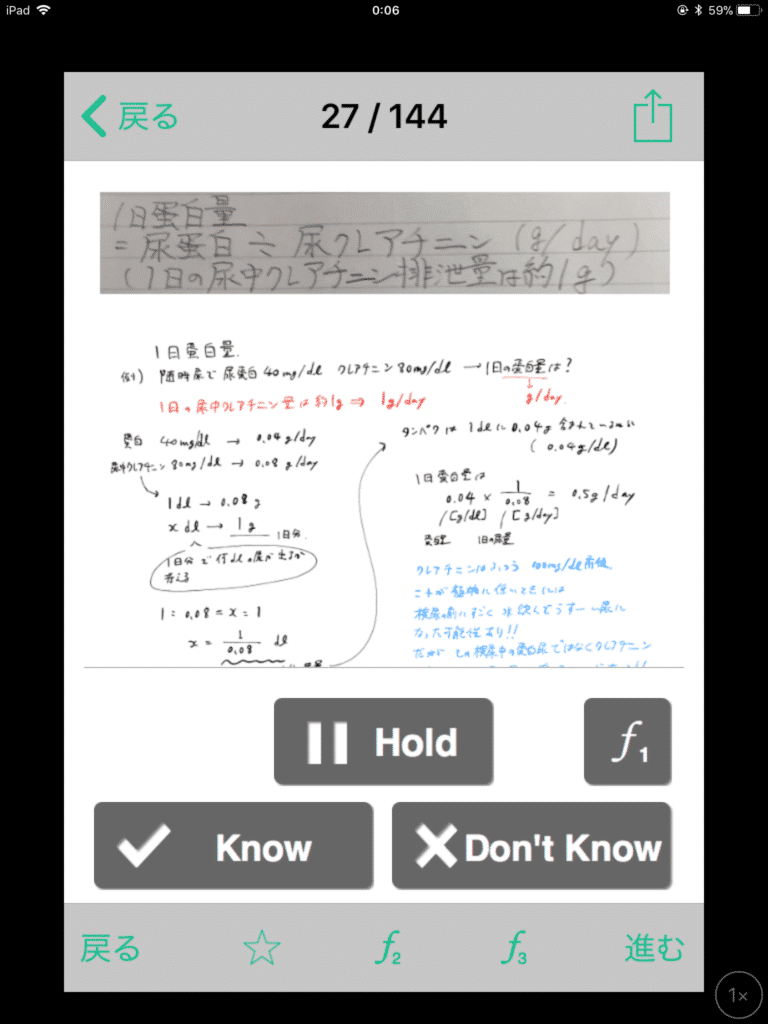 iPad 0:06 59%
戻る 27 / 144
1日蛋白量
= 尿蛋白 ÷ 尿クレアチニン (g/day)
(1日の尿中クレアチニン排泄量は約1g)
1日蛋白量
例) 随時尿で 尿蛋白 40mg/dl クレアチニン 80mg/dl → 1日の蛋白量は?
↓
g/day.
1日の尿中クレアチニン量は約1g ⇒ 1g/day
蛋白 40mg/dl → 0.04 g/day
尿中クレアチニン 80mg/dl → 0.08 g/day
1dl → 0.08 g
x dl → 1g 1日分
1日分で何dlの尿が出るか
考える
1 : 0.08 = x : 1
x = 1/0.08 dl
タンパクは 1dlに 0.04g 含まれている
(0.04g/dl)
1日蛋白量は
0.04 × 1/0.08 = 0.5g/day
[g/dl] [g/day]
蛋白量 1日の尿量
クレアチニンはふつう 100mg/dl前後
これが極端に低いときには
検尿の前にすごく水飲んでうすーい尿に
なった可能性あり!!
だから この検尿中の蛋白尿ではなくクレアチニン
Hold
f1
Know
Don't Know
戻る ☆ f2 f3 進む
1×